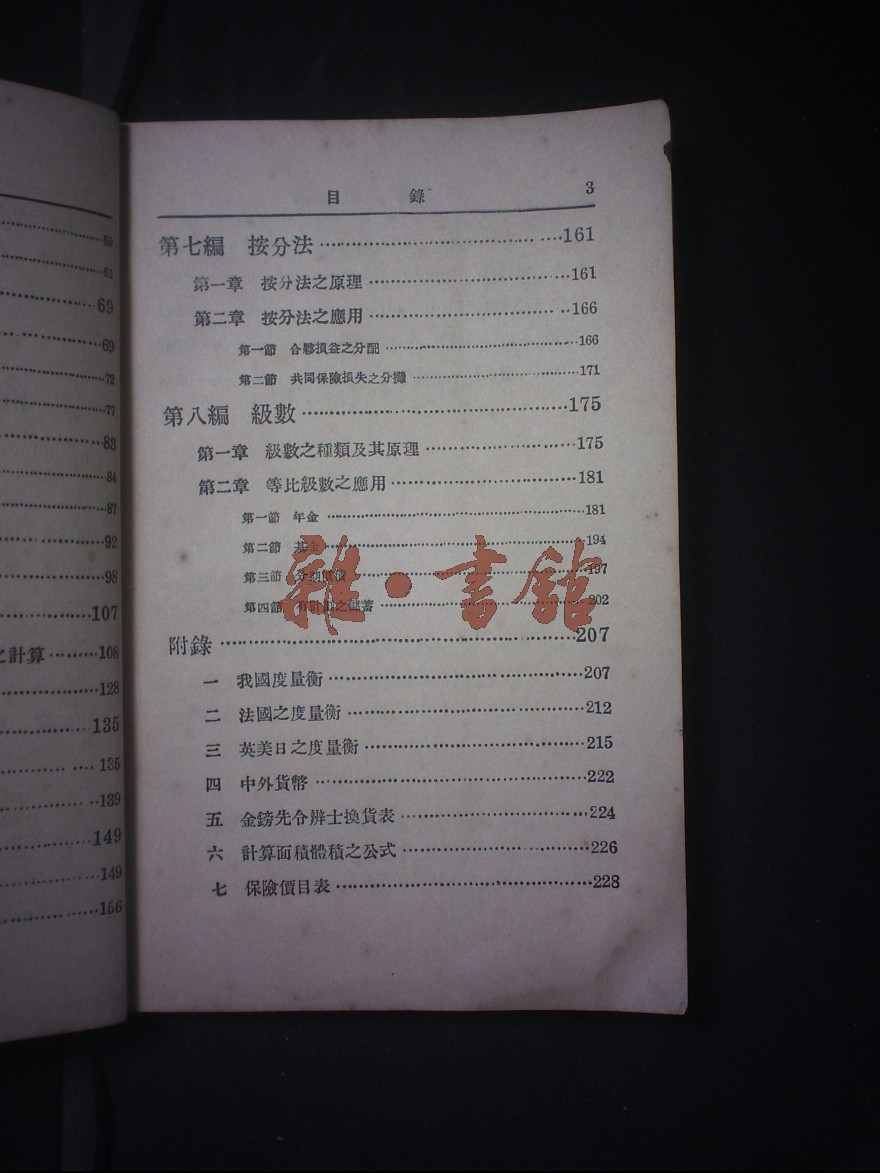 59
61
69
69
72
77
83
84
87
92
98
107
計算………108
128
135
135
139
149
149
156
目 錄 3
第七編 按分法………161
第一章 按分法之原理………161
第二章 按分法之應用………166
第一節 合夥損益之分配………166
第二節 共同保險損失之分攤………171
第八編 級數………175
第一章 級數之種類及其原理………175
第二章 等比級數之應用………181
第一節 年金………181
第二節 基金………194
第三節………197
第四節………202
附錄………207
一 我國度量衡………207
二 法國之度量衡………212
三 英美日之度量衡………215
四 中外貨幣………222
五 金鎊先令辨士換貨表………224
六 計算面積體積之公式………226
七 保險價目表………228
雜·書館